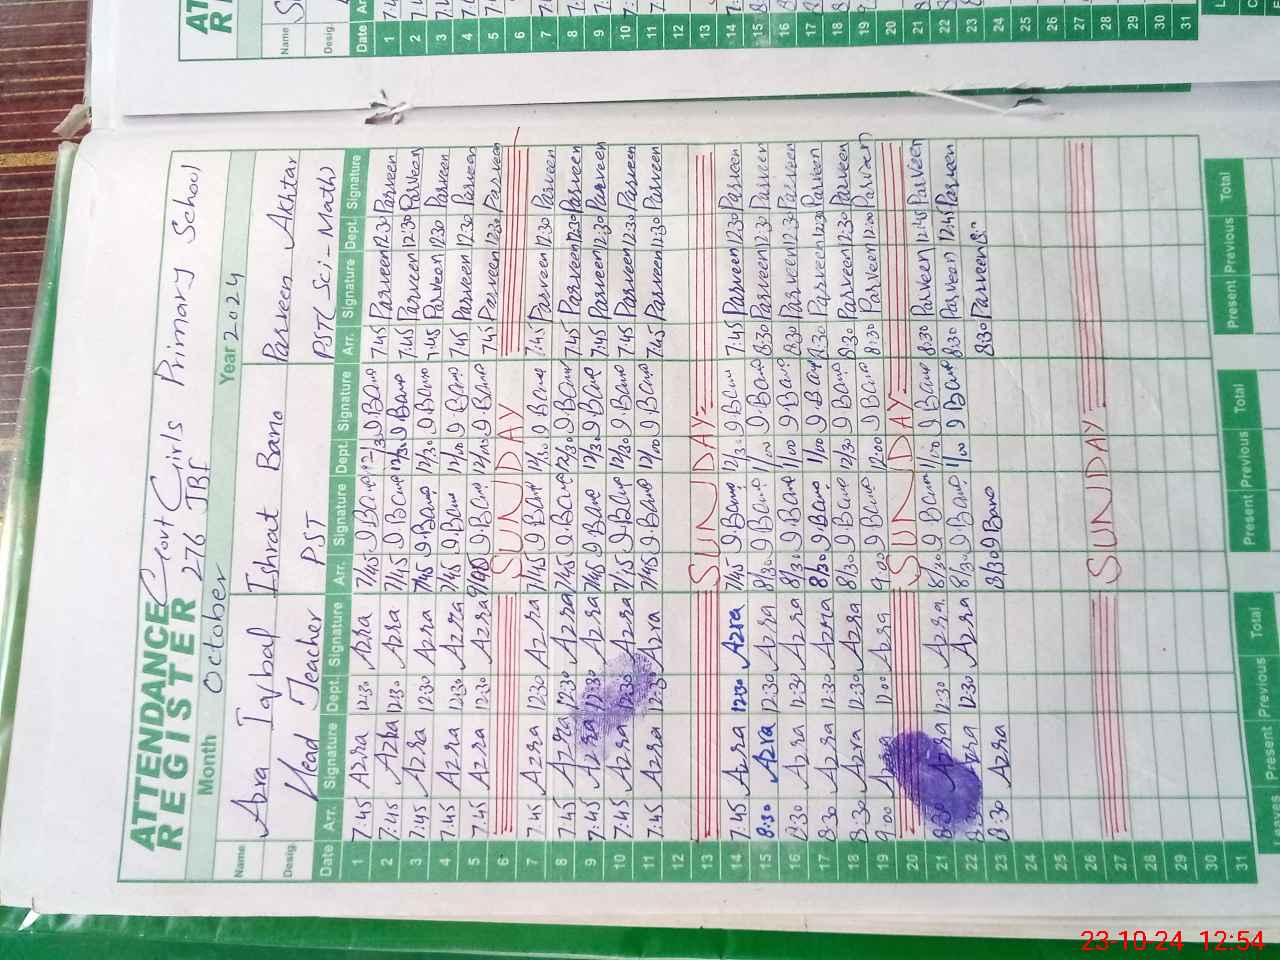 ATTENDANCE Govt Girls Primary School
REGISTER 276 JBF
Month October Year 2024
Name Azra Iqbal Ishrat Bano Parveen Akhtar
Desig. Head Teacher PST PST (Sci-Math)
Date Arr. Signature Dept. Signature Arr. Signature Dept. Signature Arr. Signature Dept. Signature
1 7:45 Azra 12:30 Azra 7/45 I Bano 12/30 I Bano 7:45 Parveen 12:30 Parveen
2 7:45 Azra 12:30 Azra 7/45 I Bano 12/30 I Bano 7:45 Parveen 12:30 Parveen
3 7:45 Azra 12:30 Azra 7/45 I Bano 12/30 I Bano 7:45 Parveen 12:30 Parveen
4 7:45 Azra 12:30 Azra 7/45 I Bano 12/00 I Bano 7:45 Parveen 12:30 Parveen
5 7:45 Azra 12:30 Azra I Bano 12/00 I Bano 7:45 Parveen 12:30 Parveen
6 SUNDAY
7 7:45 Azra 12:30 Azra 7/45 I Bano I Bano 7:45 Parveen 12:30 Parveen
8 7:45 Azra 12:30 Azra 7/45 I Bano 12/30 I Bano 7:45 Parveen 12:30 Parveen
9 7:45 Azra 12:30 Azra 7/45 I Bano 12/30 I Bano 7:45 Parveen 12:30 Parveen
10 7:45 Azra 12:30 Azra 7/45 I Bano 12/30 I Bano 7:45 Parveen 12:30 Parveen
11 7:45 Azra 12:30 Azra 7/45 I Bano 12/00 I Bano 7:45 Parveen 12:30 Parveen
12
13 SUNDAY
14 7:45 Azra 12:30 Azra 7/45 I Bano 12/30 I Bano 7:45 Parveen 12:30 Parveen
15 8:30 Azra 12:30 Azra 8/30 I Bano 1/00 I Bano 8:30 Parveen 12:30 Parveen
16 8:30 Azra 12:30 Azra 8/30 I Bano 1/00 I Bano 8:30 Parveen 12:30 Parveen
17 8:30 Azra 12:30 Azra 8/30 I Bano 1/00 I Bano 8:30 Parveen 12:30 Parveen
18 8:30 Azra 12:30 Azra 8/30 I Bano 12/30 I Bano 8:30 Parveen 12:30 Parveen
19 9:00 Azra 12:00 Azra 9:00 I Bano 12:00 I Bano 8:30 Parveen 12:00 Parveen
20 SUNDAY
21 8:30 Azra 12:30 Azra 8/30 I Bano 1/00 I Bano 8:30 Parveen 12:45 Parveen
22 8:30 Azra 12:30 Azra 8/30 I Bano 1/00 I Bano 8:30 Parveen 12:45 Parveen
23 8:30 Azra 8/30 I Bano 8:30 Parveen
24
25
26
27 SUNDAY
28
29
30
31
Leaves Present Previous Total Present Previous Total Present Previous Total
Name
Desig.
Date
1 7:4
2 7:4
3
4
5
6
7
8
9
10
11
12
13
14
15
16
17
18
19
20
21
22
23
24
25
26
27
28
29
30
31
23-10-24 12:54